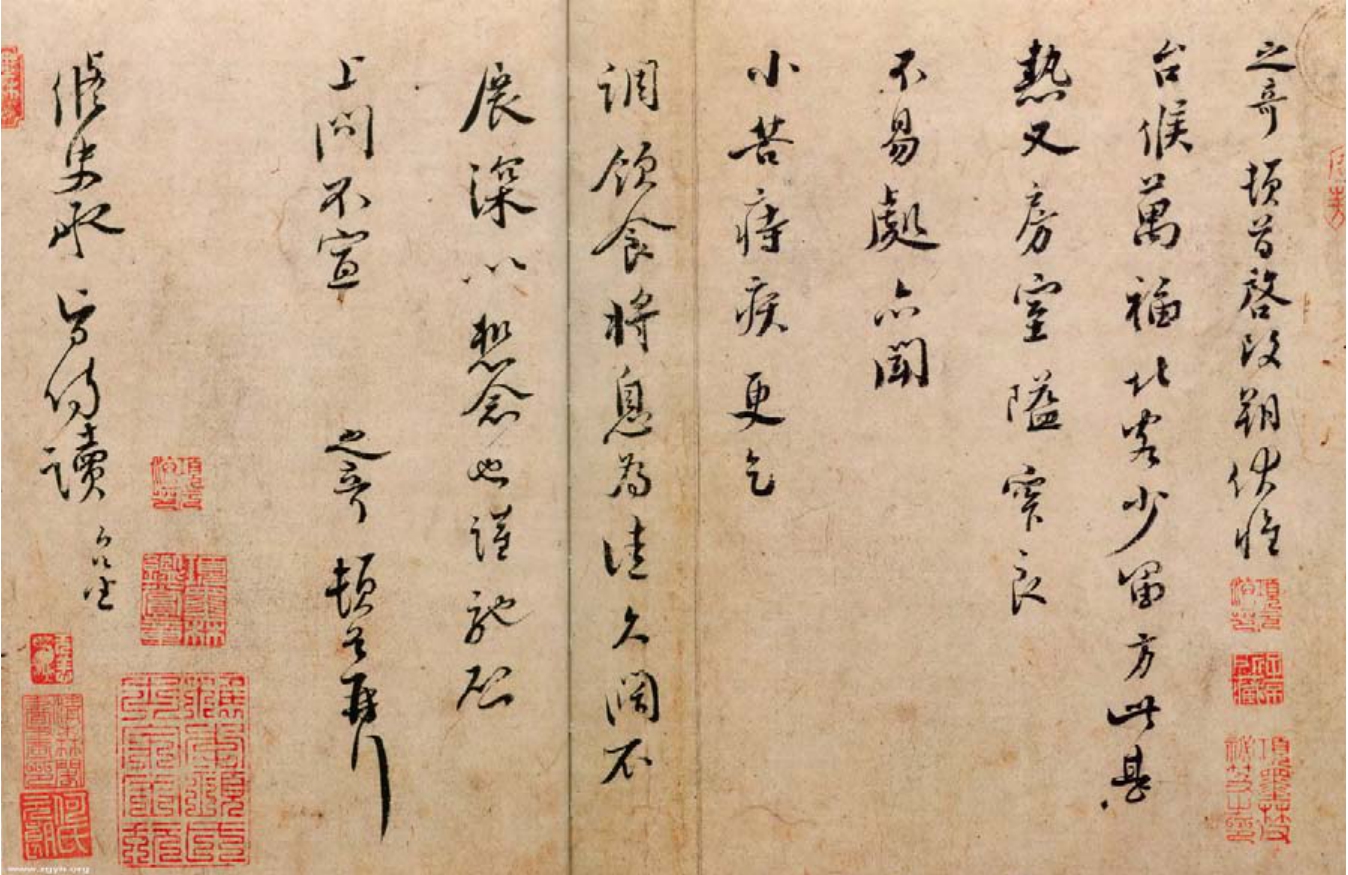 之奇頓首啓改朔伏惟
台候萬福北客少留方此甚
熱又房室隘窄良
不易處亦聞
小苦痔疾更乞
調飲食將息為佳久闊不
展深以想念也謹馳啓
上問不宣 之奇頓首再拜
修史承旨侍讀 台坐
www.zgyx.org